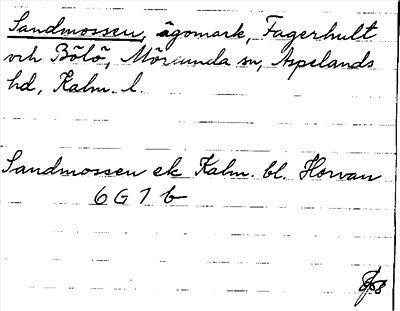 Sandmossen, ägomark, Fagerhult
och Bölö, Mörlunda sn, Aspelands
hd, Kalm. l.
Sandmossen ek Kalm. bl. Horvan
6 G 7 b